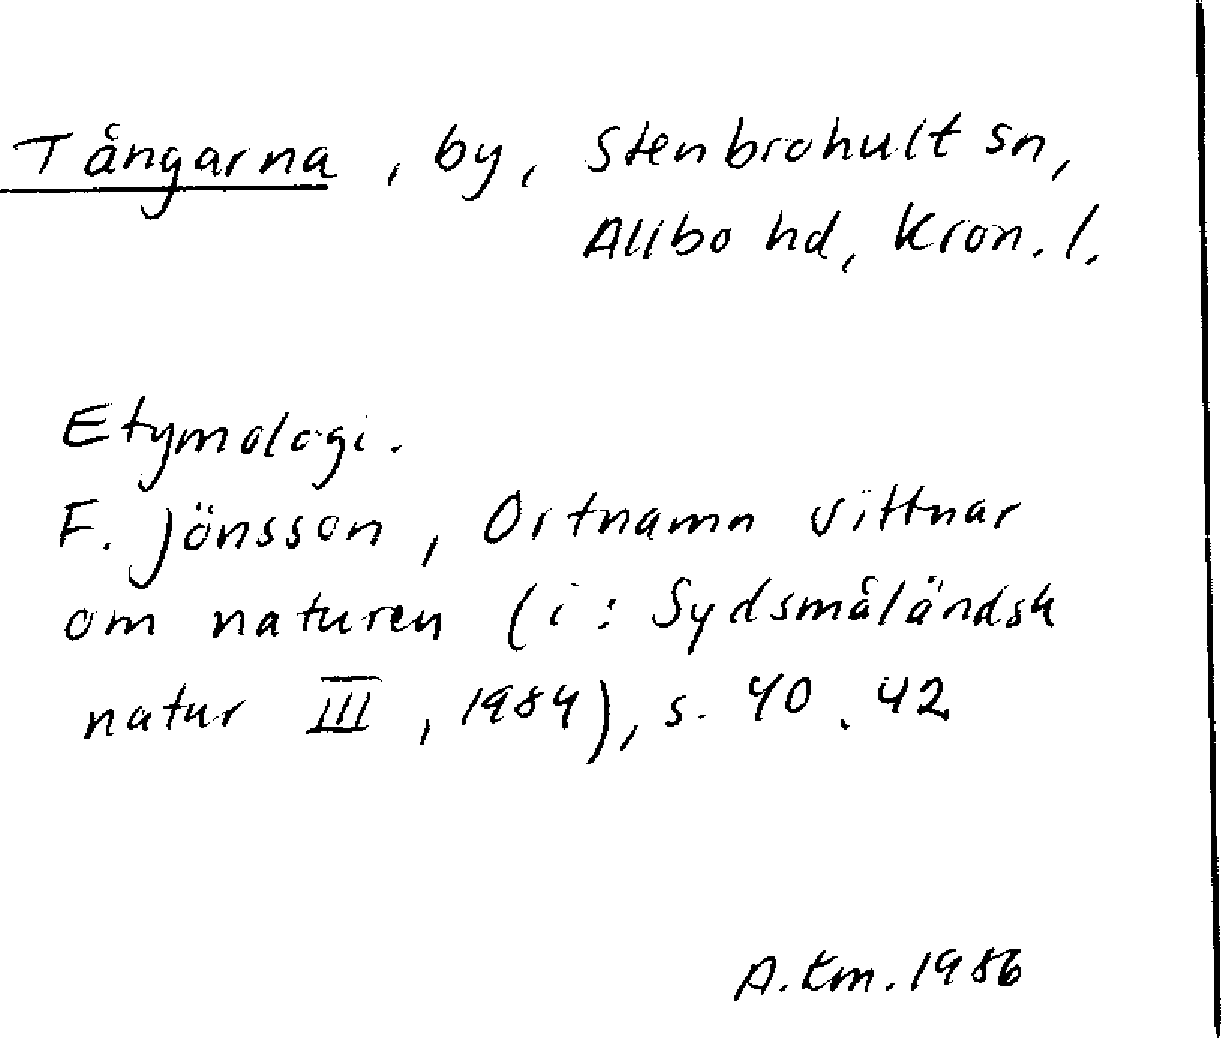 Tångarna, by, Stenbrohult sn,
Allbo hd, Kron. l.
Etymologi.
F. Jönsson, Ortnamn vittnar
om naturen (i: Sydsmåländsk
natur III, 1984), s. 40, 42
A.tm.1986